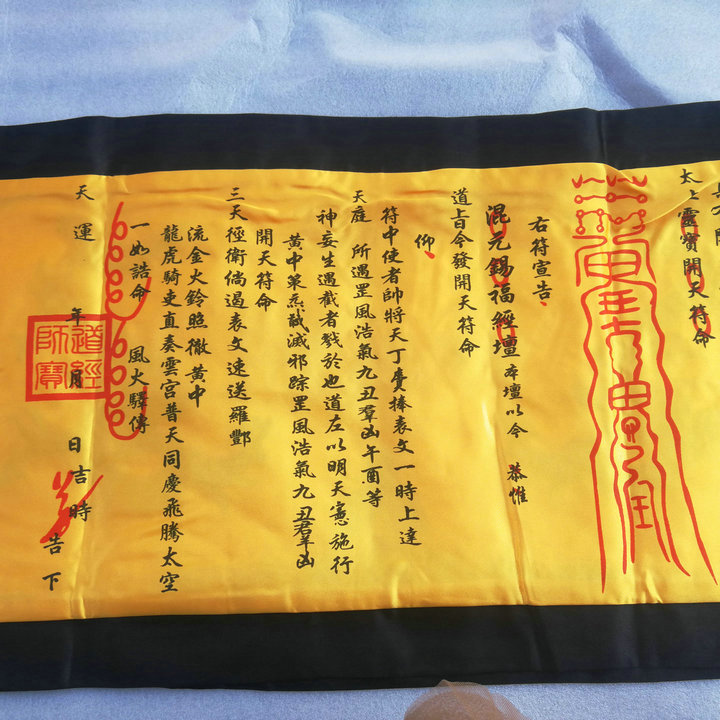 太上靈寶開天符命
右符宣告
混元錫福經壇本壇以今 恭惟
道旨令發開天符命
仰
符中使者師將天丁賫捧表文一時上達
天庭 所遇罡風浩氣九丑羣凶午酉等
神妄生遏截者戮於也道左以明天憲施行
黄中策炁馘滅邪踪罡風浩氣九丑羣凶
開天符命
三天徑衛倘遏表文速送羅酆
流金火鈴照徹黄中
龍虎騎吏直奏雲宮普天同慶飛騰太空
一如誥命 風火驛傳
天運 年 月 日吉時告下
道經師寶